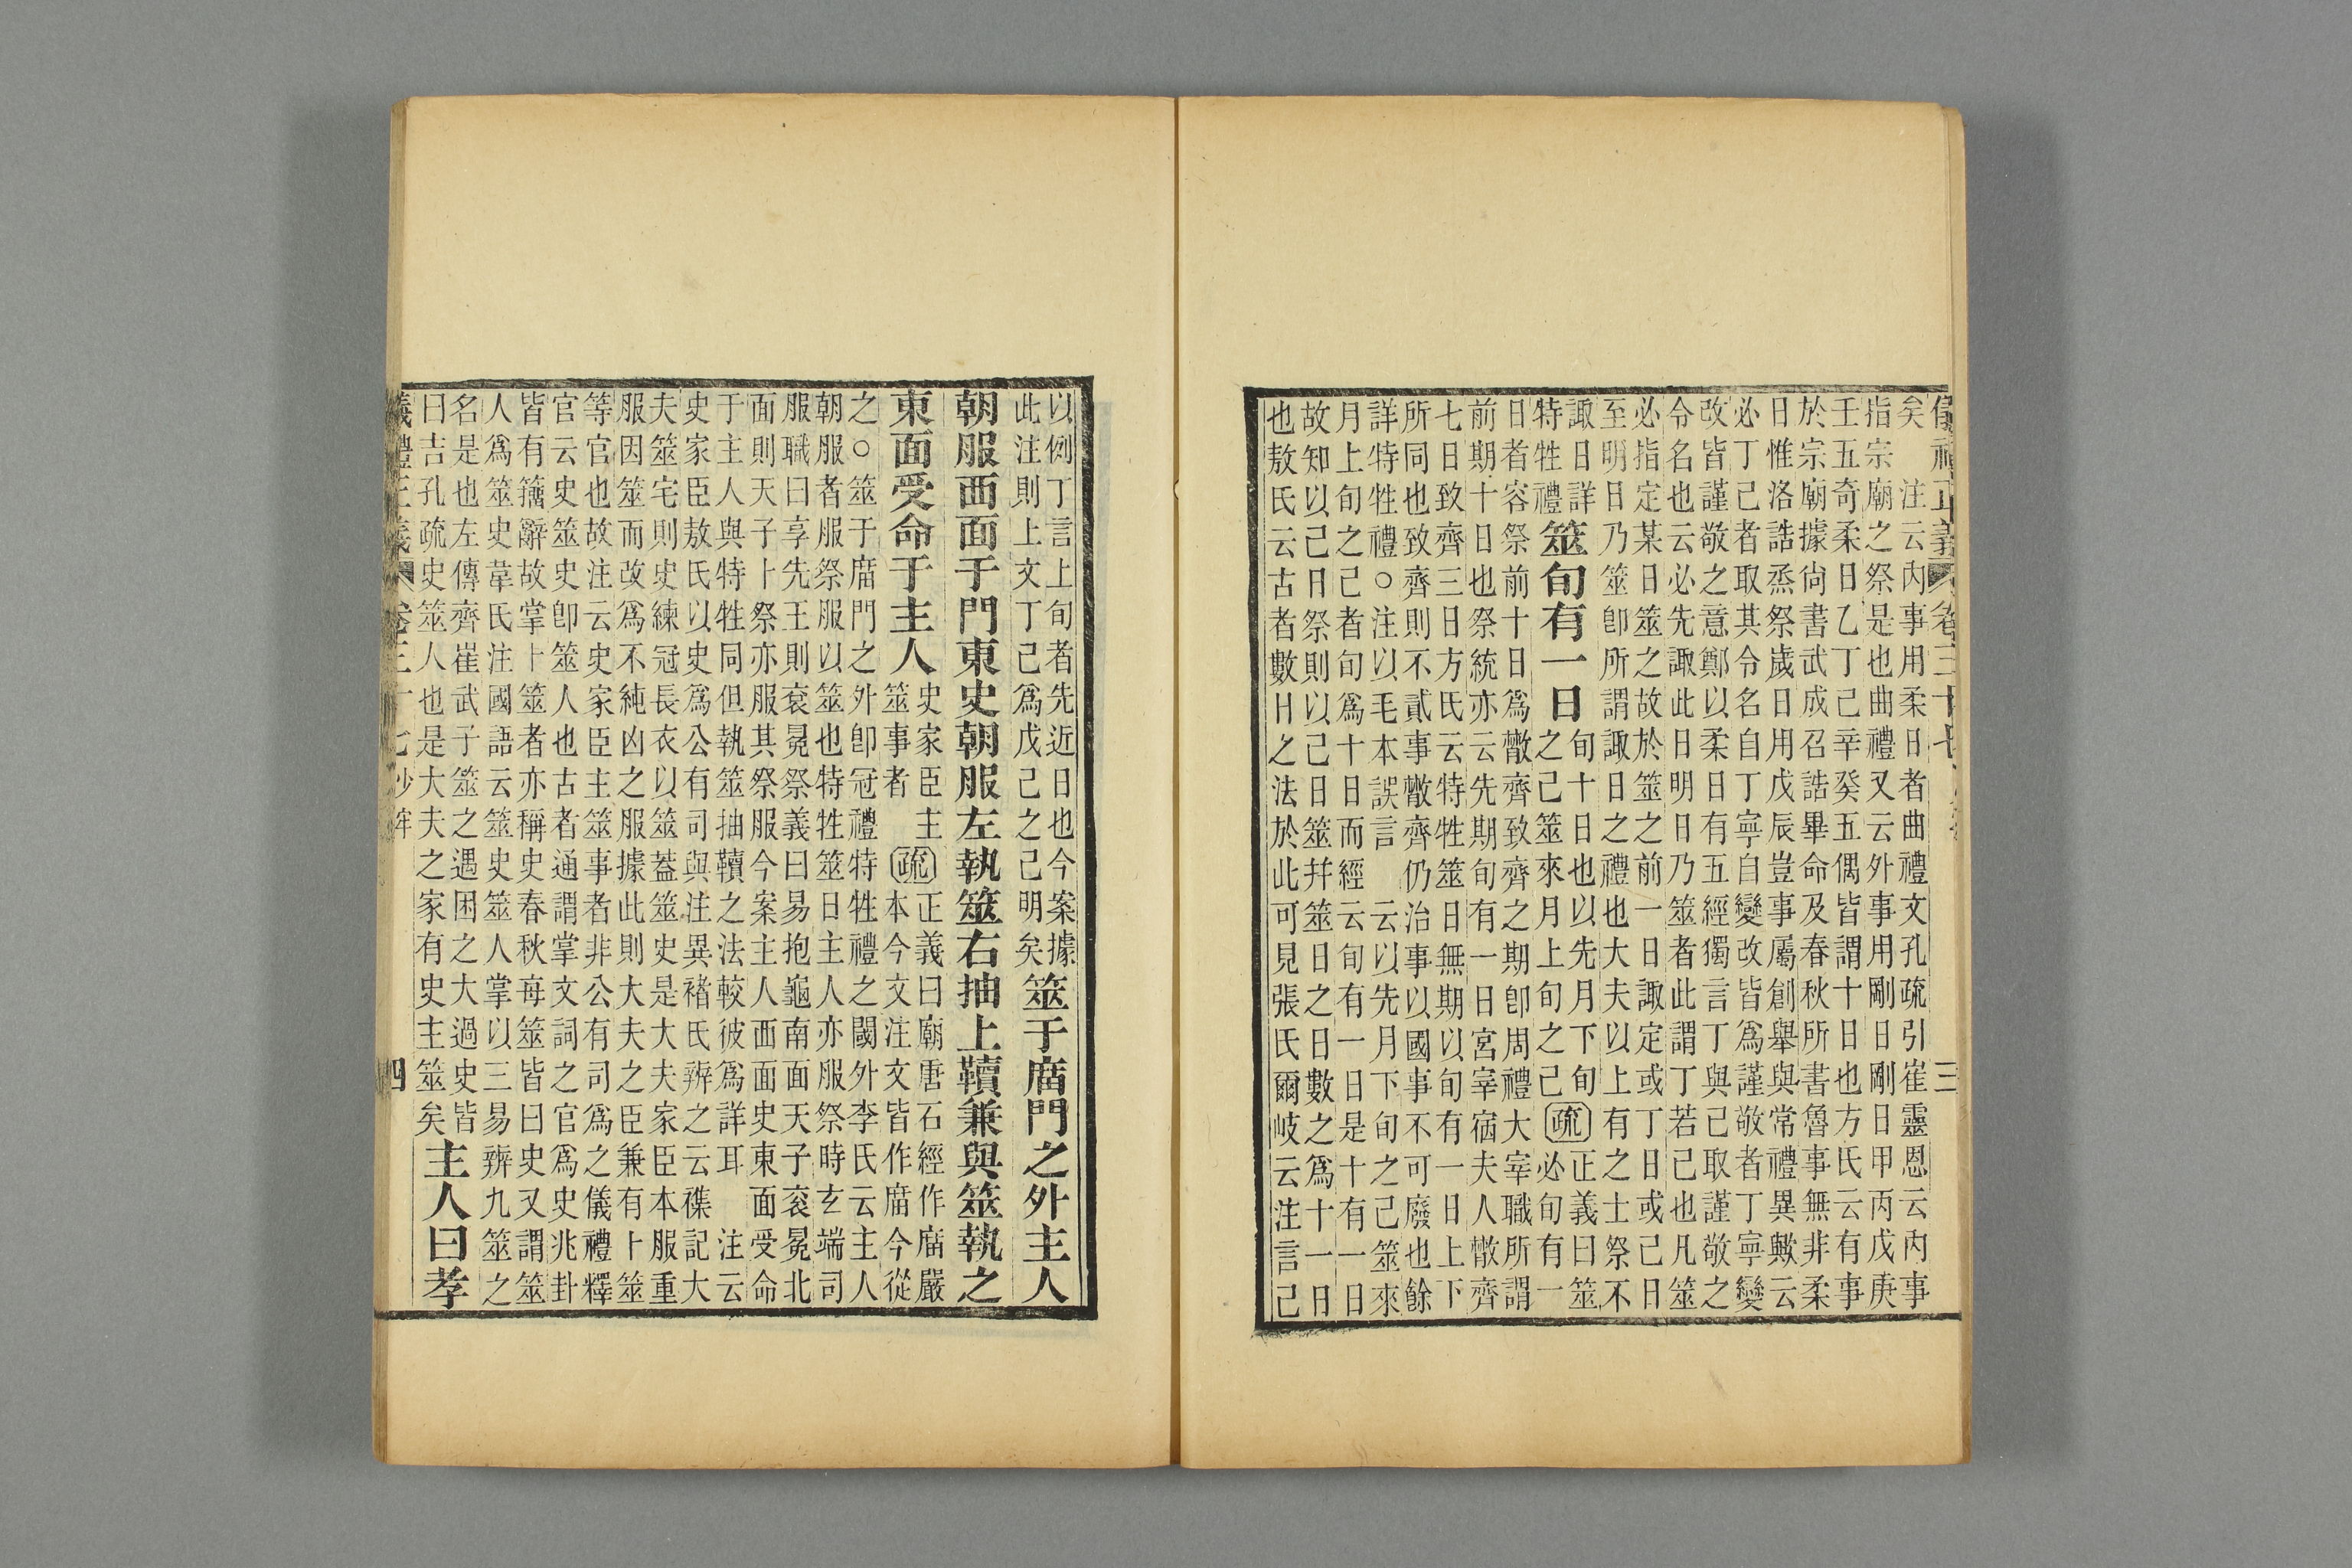 儀禮正義 卷三十七 三
矣 注云內事用柔日者曲禮文孔疏引崔靈恩云內事
指宗廟之祭是也曲禮又云外事用剛日剛日甲丙戊庚
壬五奇柔日乙丁己辛癸五偶皆謂十日也方氏云有事
於宗廟據尙書武成召誥畢命及春秋所書魯事無非柔
日惟洛誥烝祭歲日用戊辰豈事屬創舉與常禮異歟云
必丁己者取其令名自丁寧自變改皆爲謹敬者丁寧變
改皆謹敬之意鄭以柔日有五經獨言丁與己取謹敬之
令名也云必先諏此日明日乃筮者此謂丁若己也凡筮
必指定某日筮之故於筮之前一日諏定或丁日或己日
至明日乃筮卽所謂諏日之禮也大夫以上有之士祭不
諏日詳
特牲禮
筮旬有一日
旬十日也以先月下旬
之己筮來月上旬之己
疏
正義曰筮
必旬有一
日者容祭前十日爲散齊致齊之期卽周禮大宰職所謂
前期十日也祭統亦云先期旬有一日宮宰宿夫人散齊
七日致齊三日方氏云特牲筮日無期以旬有一日上下
所同也致齊則不貳事散齊仍治事以國事不可廢也餘
詳特牲禮○注以毛本誤言 云以先月下旬之己筮來
月上旬之己者旬爲十日而經云旬有一日是十有一日
故知以己日祭則以己日筮幷筮日之日數之爲十一日
也敖氏云古者數日之法於此可見張氏爾岐云注言己
以例丁言上旬者先近日也今案據
此注則上文丁己爲戊己之己明矣
筮于廟門之外主人
朝服西面于門東史朝服左執筮右抽上韇兼與筮執之
東面受命于主人
史家臣主
筮事者
疏
正義曰廟唐石經作庿嚴
本今文注文皆作庿今從
之○筮于庿門之外卽冠禮特牲禮之闑外李氏云主人
朝服者服祭服以筮也特牲筮日主人亦服祭時玄端司
服職曰享先王則衮冕祭義曰易抱龜南面天子衮冕北
面則天子卜祭亦服其祭服今案主人西面史東面受命
于主人與特牲同但執筮抽韇之法較彼爲詳耳 注云
史家臣敖氏以史爲公有司與注異褚氏辨之云襍記大
夫筮宅則史練冠長衣以筮葢筮史是大夫家臣本服重
服因筮而改爲不純凶之服據此則大夫之臣兼有卜筮
等官也故注云史家臣主筮事者非公有司爲之儀禮釋
官云史筮史卽筮人也古者通謂掌文詞之官爲史兆卦
皆有籒辭故掌卜筮者亦稱史春秋每筮皆曰史又謂筮
人爲筮史韋氏注國語云筮史筮人掌以三易辨九筮之
名是也左傳齊崔武子筮之遇困之大過史皆
曰吉孔疏史筮人也是大夫之家有史主筮矣
主人曰孝
儀禮正義 卷三十七 少牢 四